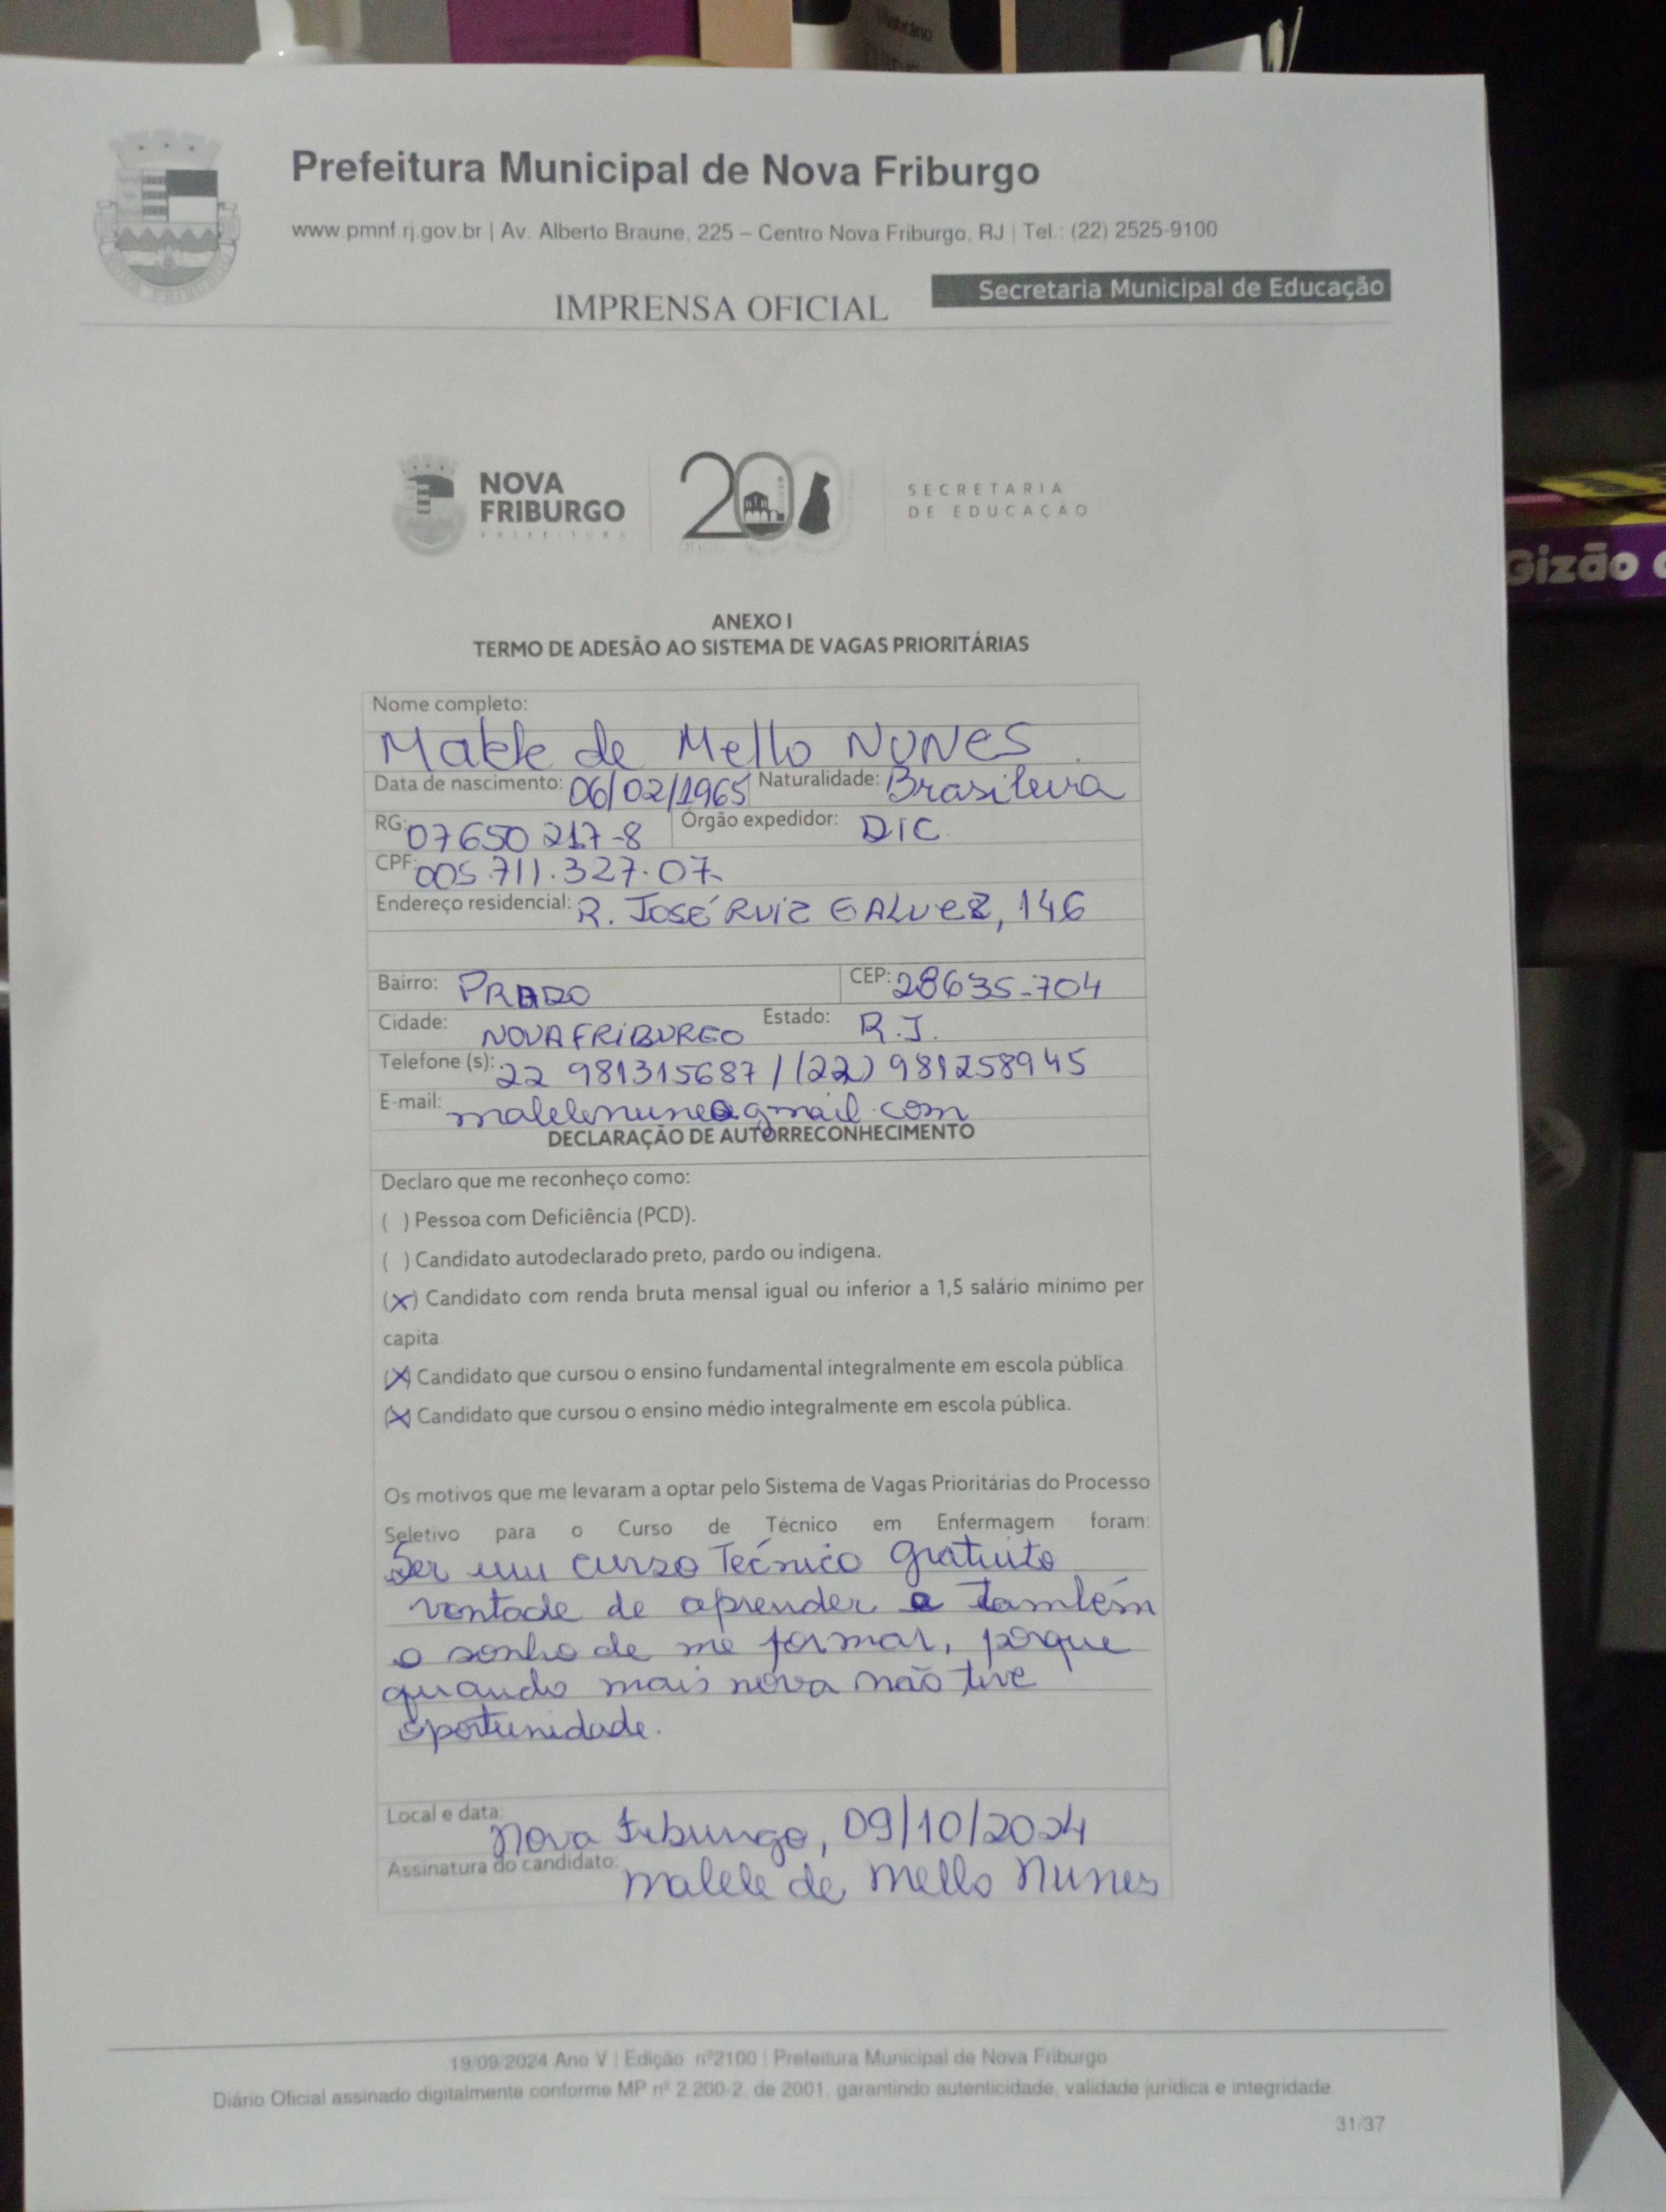 Prefeitura Municipal de Nova Friburgo
www.pmnf.rj.gov.br | Av. Alberto Braune, 225 – Centro Nova Friburgo, RJ | Tel.: (22) 2525-9100
Secretaria Municipal de Educação
IMPRENSA OFICIAL
NOVA
FRIBURGO
PREFEITURA
200
anos
SECRETARIA
DE EDUCAÇÃO
Gizão
ANEXO I
TERMO DE ADESÃO AO SISTEMA DE VAGAS PRIORITÁRIAS
Nome completo:
de Mello NUNES
Data de nascimento: 06/02/1965 Naturalidade: Brasileira
RG: 07650217-8 Órgão expedidor: DIC
CPF: 005.711.327.07
Endereço residencial: R. JOSÉ RUIZ GALVEZ, 146
Bairro: PRADO CEP: 28635-704
Cidade: NOVA FRIBURGO Estado: R.J.
Telefone (s): 22 981315687 / (22) 981258945
E-mail:
DECLARAÇÃO DE AUTORRECONHECIMENTO
Declaro que me reconheço como:
( ) Pessoa com Deficiência (PCD).
( ) Candidato autodeclarado preto, pardo ou indígena.
(x) Candidato com renda bruta mensal igual ou inferior a 1,5 salário mínimo per
capita.
(X) Candidato que cursou o ensino fundamental integralmente em escola pública.
(X) Candidato que cursou o ensino médio integralmente em escola pública.
Os motivos que me levaram a optar pelo Sistema de Vagas Prioritárias do Processo
Seletivo para o Curso de Técnico em Enfermagem foram:
Ser um curso Técnico gratuito
vontade de aprender e também
o sonho de me formar, porque
quando mais nova não tive
oportunidade.
Local e data: Nova Friburgo, 09/10/2024
Assinatura do candidato: de Mello Nunes
19/09/2024 Ano V | Edição nº2100 | Prefeitura Municipal de Nova Friburgo
Diário Oficial assinado digitalmente conforme MP nº 2.200-2, de 2001, garantindo autenticidade, validade jurídica e integridade.
31/37